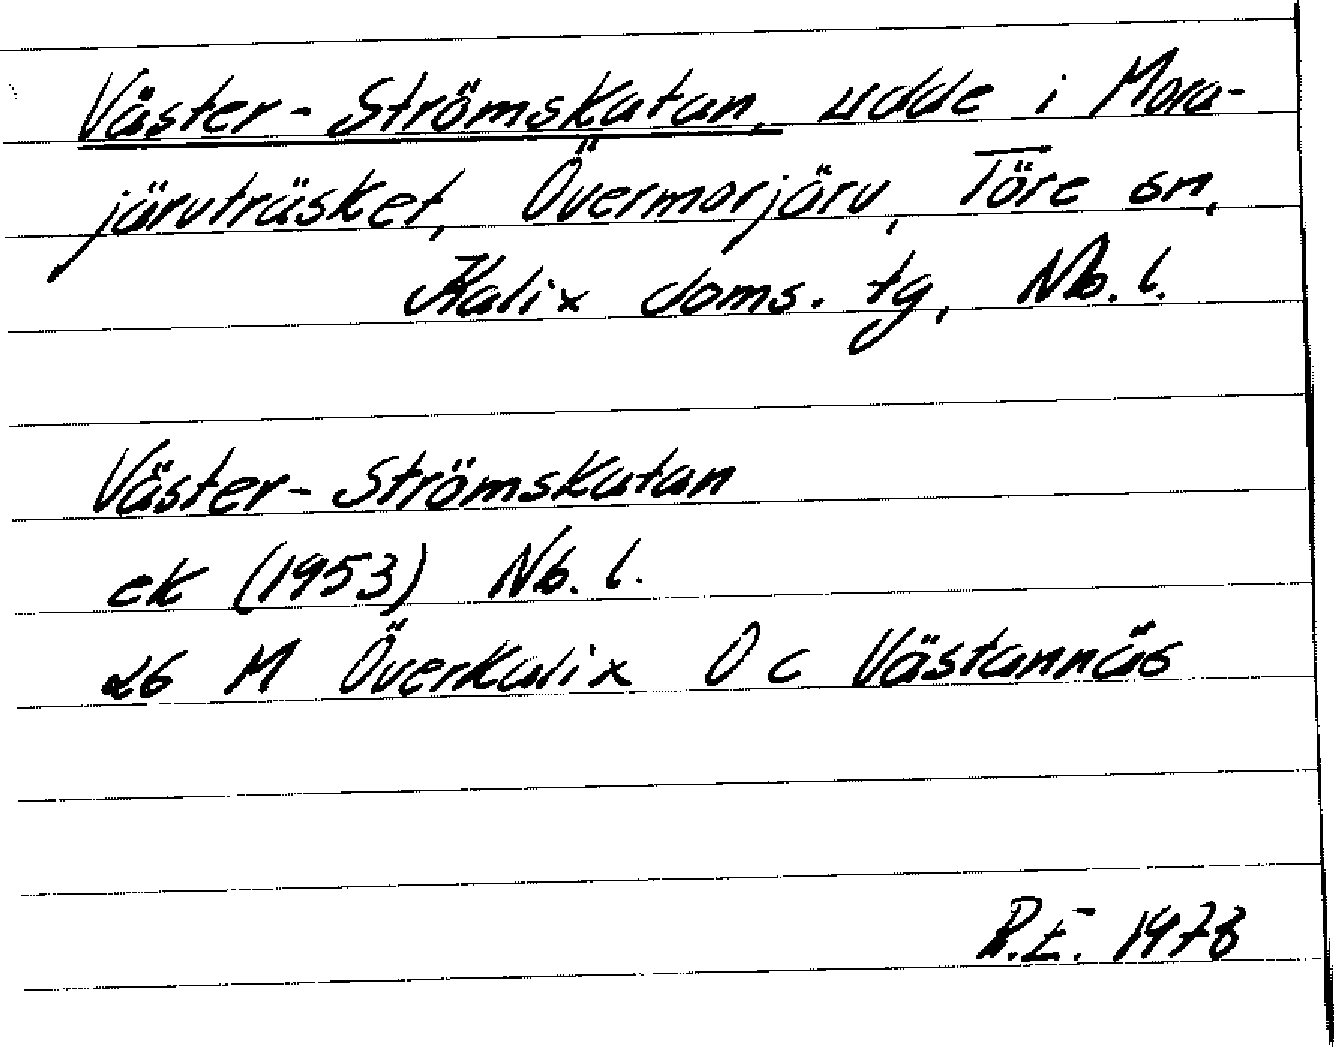 Väster-Strömskatan, udde i Mora-
järvträsket, Övermorjärv, Töre sn,
Kalix doms. tg, Nb. l.
Väster-Strömskatan
ek (1953) Nb. l.
26 M Överkalix O c Västannäs
R.E. 1978